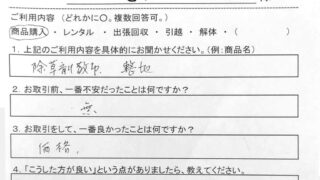 ご利用内容（どれかに○。複数回答可。）
商品購入 ・ レンタル ・ 出張回収 ・ 引越 ・ 解体 ・（　　　）
1. 上記のご利用内容を具体的にお聞かせください。(例：商品名)
除草剤散布 整地
2. お取引前、一番不安だったことは何ですか？
無
3. お取引をして、一番良かったことは何ですか？
価格
4. 「こうした方が良い」という点がありましたら、教えてください。